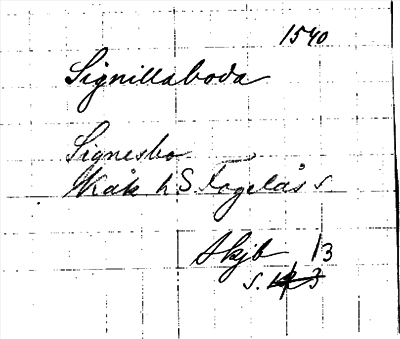 1540
Signillaboda
Signesbo
Kåk h S Fogelås s
Skjb 1/3
s.